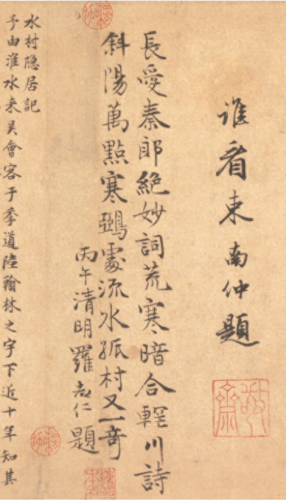 誰看東南仲題
長愛秦郎絕妙詞荒寒暗合輞川詩
斜陽萬點寒鵶處流水孤村又一奇
丙午清明羅志仁題
水村隐居記
予由淮水来吳會客于季道陸翰林之宇下近十年知其